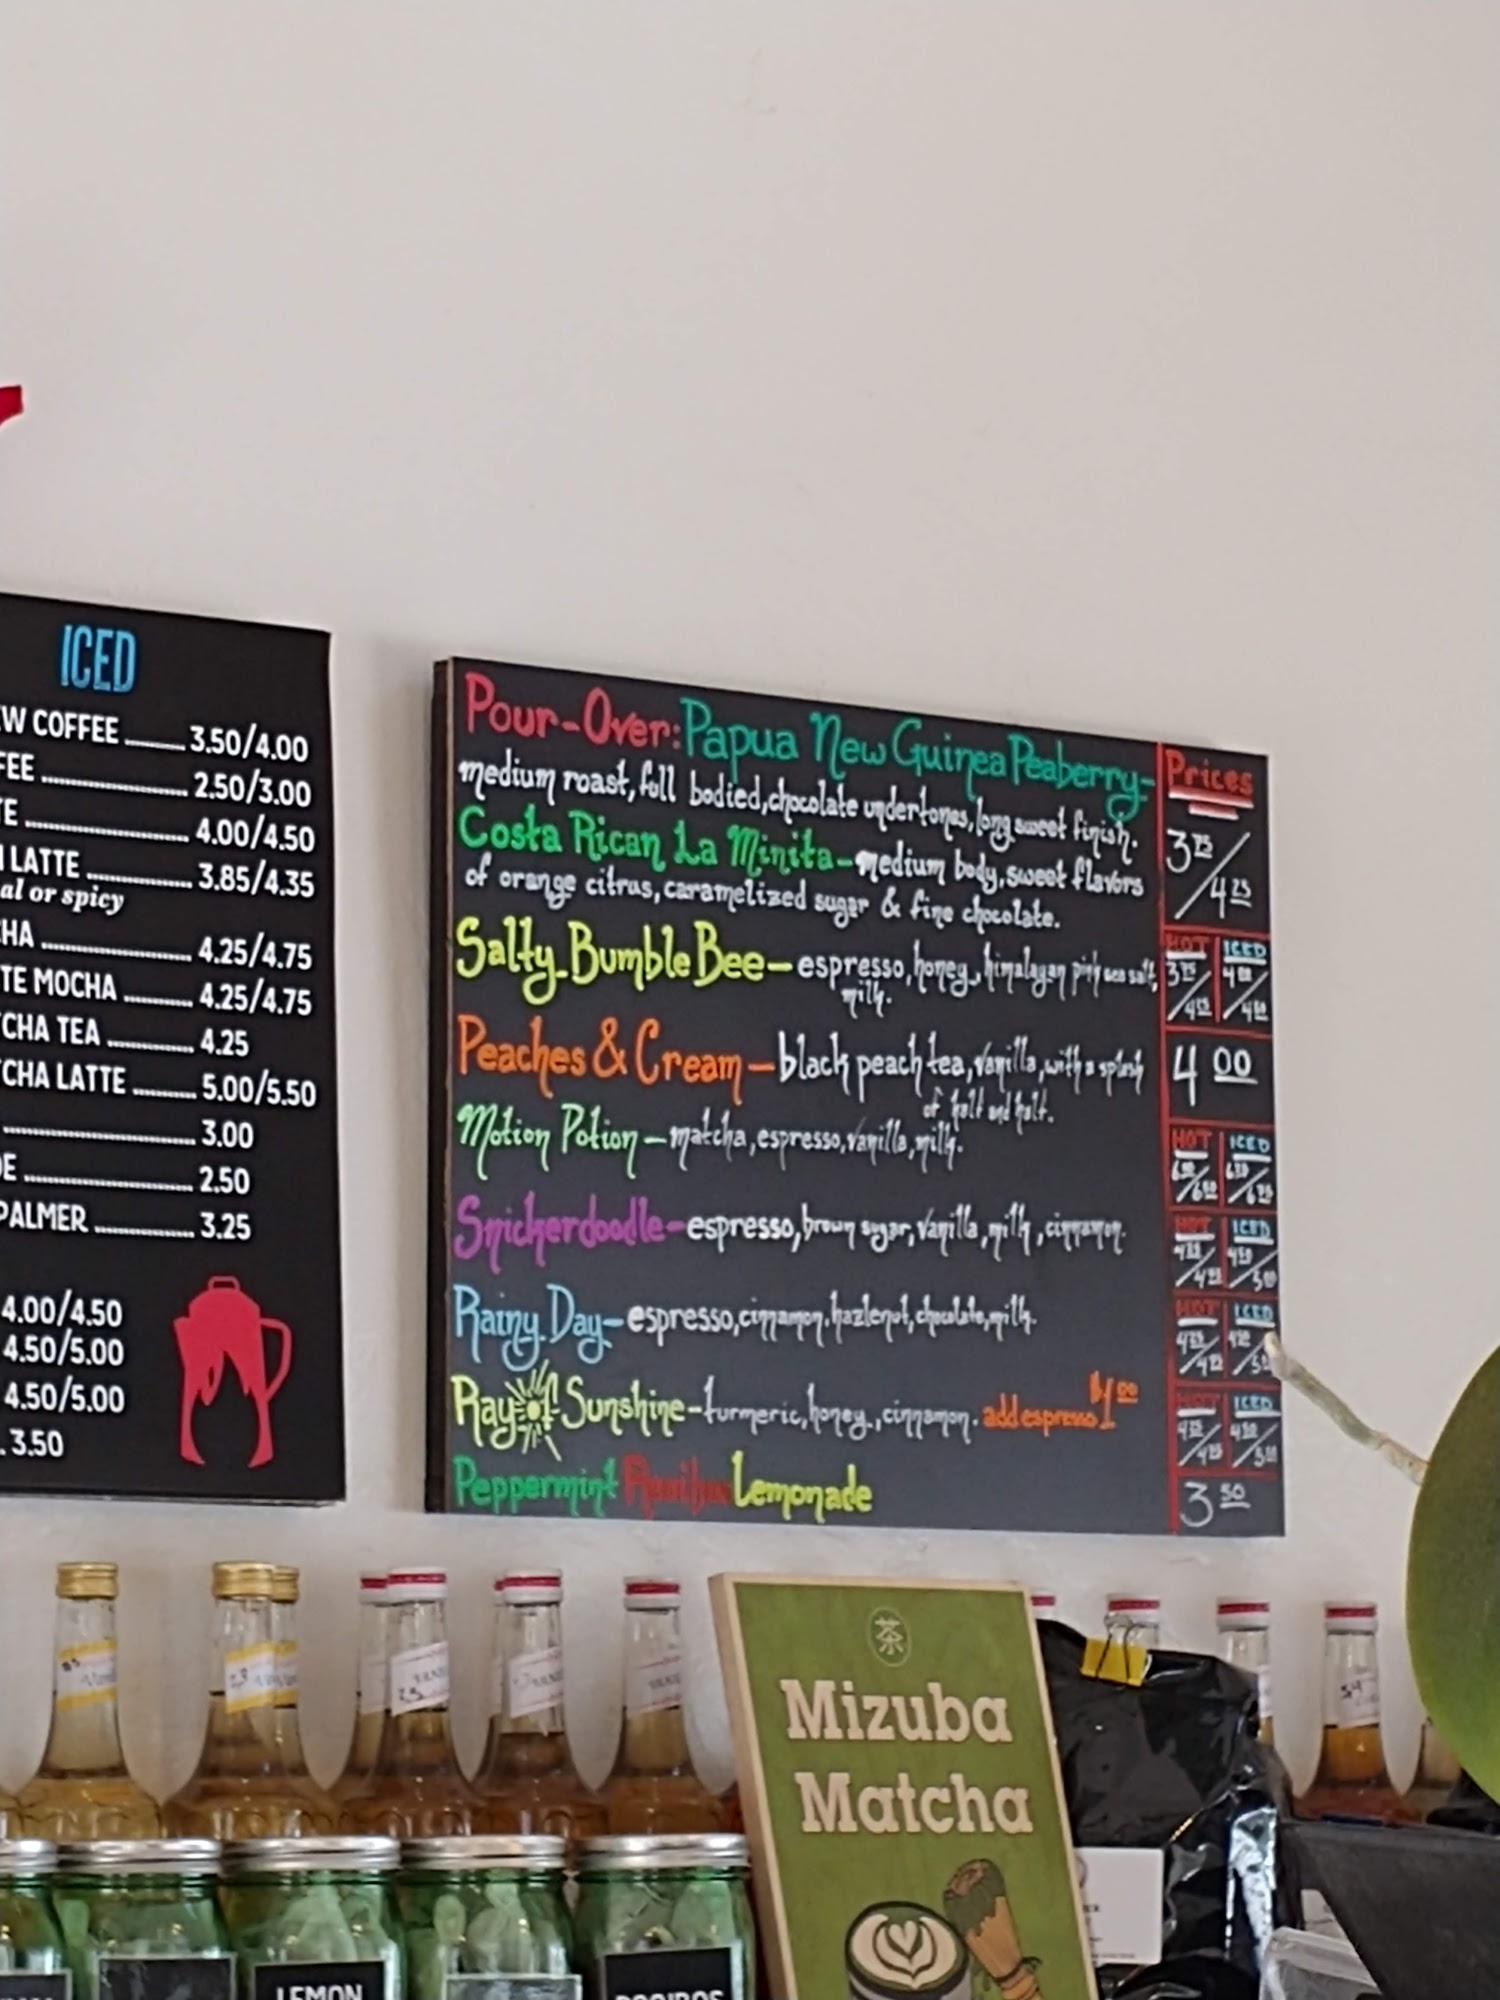 ICED
EW COFFEE 3.50/4.00
FEE 2.50/3.00
TE 4.00/4.50
I LATTE 3.85/4.35
al or spicy
HA 4.25/4.75
TE MOCHA 4.25/4.75
TCHA TEA 4.25
TCHA LATTE 5.00/5.50
3.00
DE 2.50
PALMER 3.25
4.00/4.50
4.50/5.00
4.50/5.00
3.50
Pour-Over: Papua New Guinea Peaberry-
medium roast, full bodied, chocolate undertones, long sweet finish.
Costa Rican La Minita- medium body, sweet flavors
of orange citrus, caramelized sugar & fine chocolate.
Salty Bumble Bee- espresso, honey, himalayan pink sea salt,
milk.
Peaches & Cream- black peach tea, vanilla, with a splash
of half and half.
Motion Potion- matcha, espresso, vanilla, milk.
Snickerdoodle- espresso, brown sugar, vanilla, milk, cinnamon.
Rainy Day- espresso, cinnamon, hazlenut, chocolate, milk.
Ray of Sunshine- turmeric, honey, cinnamon. add espresso $1.00
Peppermint Rooibus Lemonade
Prices
3.75/4.25
HOT ICED
4 00
HOT ICED
HOT ICED
HOT ICED
HOT ICED
3 50
茶
Mizuba
Matcha
LEMON
ROOIBOS